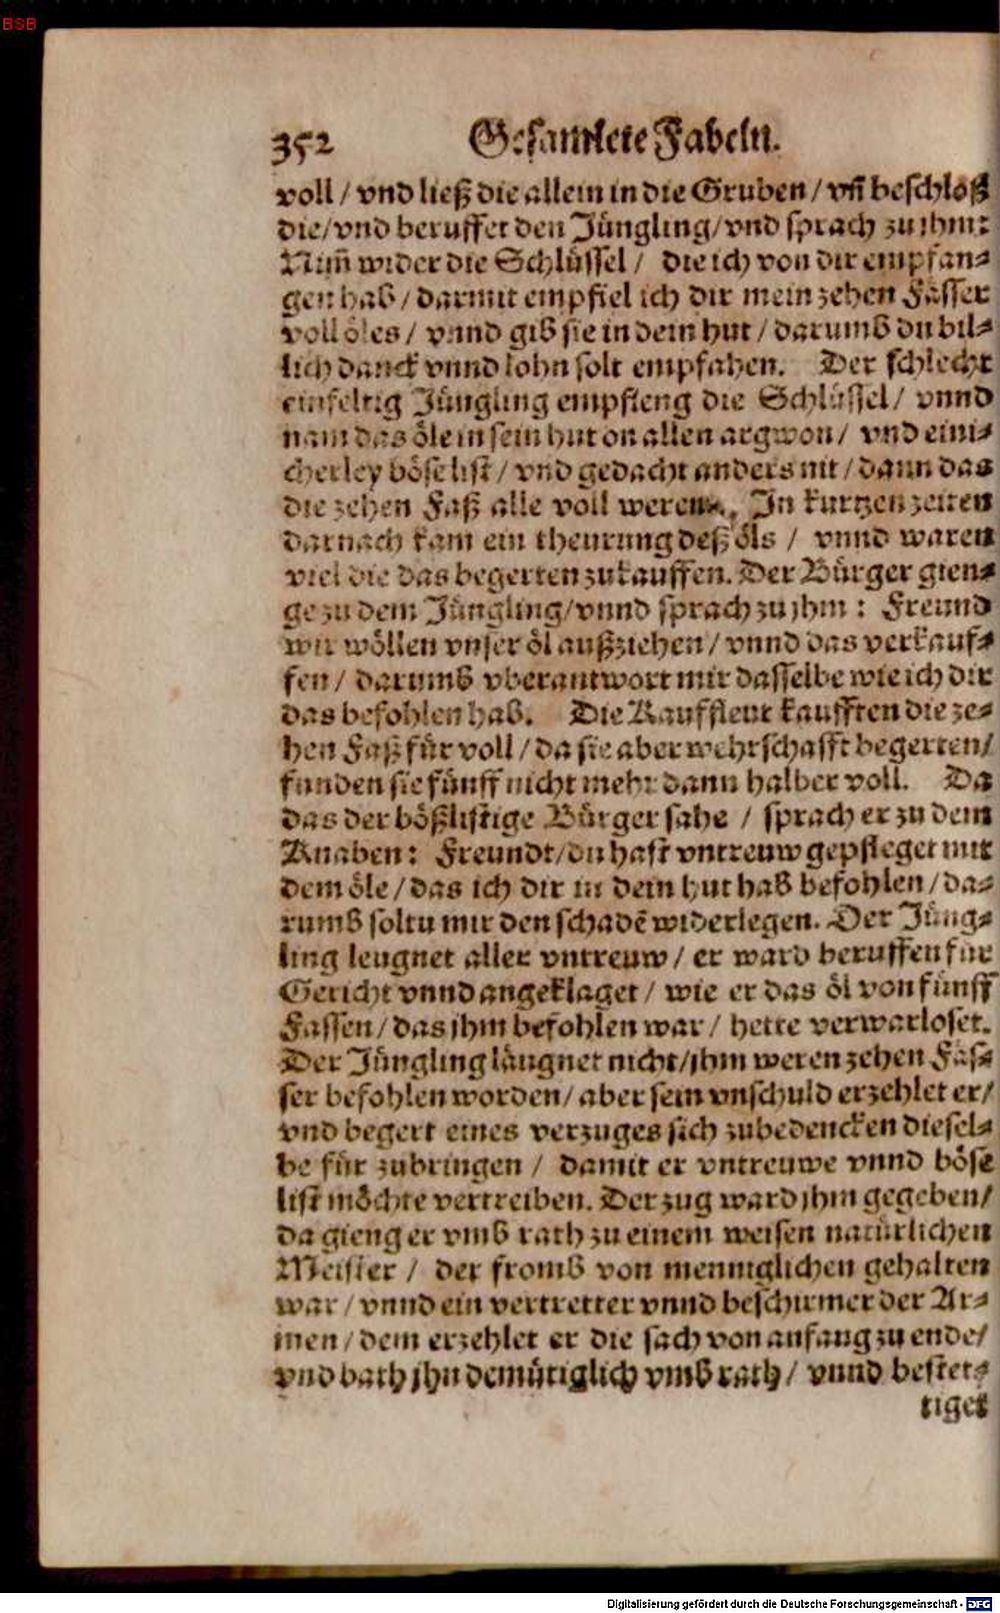 BSB
352 Gesamlete Fabeln.
voll / vnd ließ die allein in die Gruben / vñ beschloß
die / vnd beruffet den Jüngling / vnd sprach zu jhm:
Nim̃ wider die Schlüssel / die ich von dir empfan-
gen hab / darmit empfiel ich dir mein zehen Fässer
voll öles / vnnd gib sie in dein hut / darumb du bil-
lich danck vnnd lohn solt empfahen. Der schlecht
einfeltig Jüngling empfieng die Schlüssel / vnnd
nam das öle in sein hut on allen argwon / vnd eini-
cherley böse list / vnd gedacht anders nit / dann das
die zehen Faß alle voll weren. In kurtzen zeiten
darnach kam ein theurung deß öls / vnnd waren
viel die das begerten zukauffen. Der Bürger gien-
ge zu dem Jüngling / vnnd sprach zu jhm : Freund
wir wöllen vnser öl außziehen / vnnd das verkauf-
fen / darumb vberantwort mir dasselbe wie ich dir
das befohlen hab. Die Kauffleut kaufften die ze-
hen Faß für voll / da sie aber wehrschafft begerten /
funden sie fünff nicht mehr dann halber voll. Da
das der bößlistige Bürger sahe / sprach er zu dem
Knaben: Freundt / du hast vntreuw gepfleget mit
dem öle / das ich dir in dein hut hab befohlen / da-
rumb soltu mir den schadẽ widerlegen. Der Jüng-
ling leugnet aller vntreuw / er ward beruffen für
Gericht vnnd angeklaget / wie er das öl von fünff
Fassen / das jhm befohlen war / hette verwarloset.
Der Jüngling läugnet nicht / jhm weren zehen Fäs-
ser befohlen worden / aber sein vnschuld erzehlet er /
vnd begert eines verzuges sich zubedencken diesel-
be für zubringen / damit er vntreuwe vnnd böse
list möchte vertreiben. Der zug ward jhm gegeben /
da gieng er vmb rath zu einem weisen natürlichen
Meister / der fromb von menniglichen gehalten
war / vnnd ein vertretter vnnd beschirmer der Ar-
men / dem erzehlet er die sach von anfang zu ende /
vnd bath jhn demütiglich vmb rath / vnnd bestet-
tiget
Digitalisierung gefördert durch die Deutsche Forschungsgemeinschaft - DFG